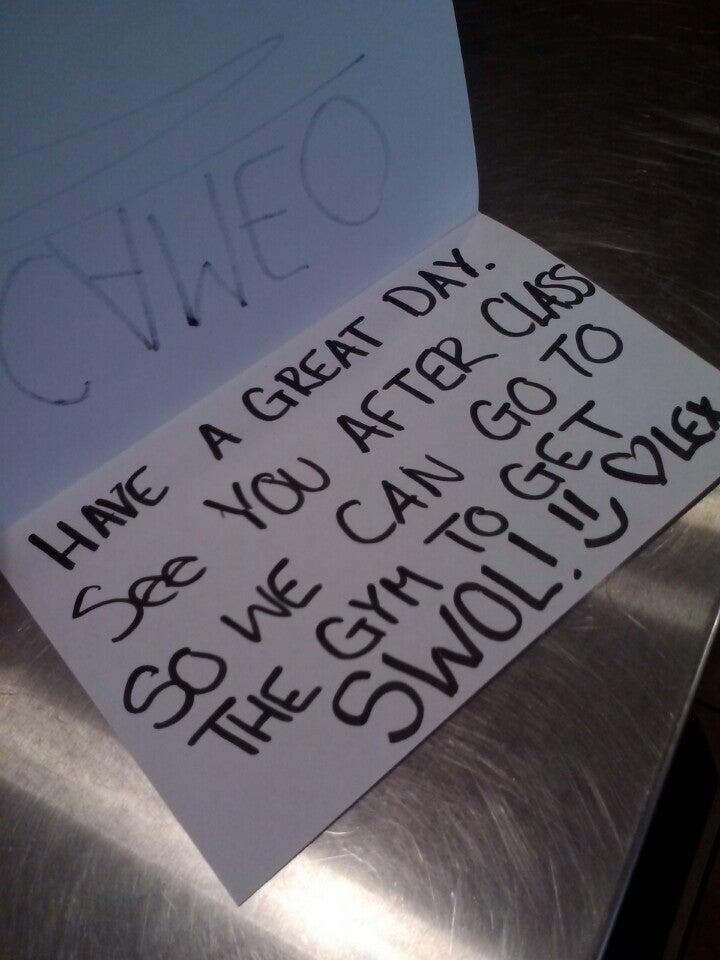 CAMEO
HAVE A GREAT DAY.
SEE YOU AFTER CLASS
SO WE CAN GO TO
THE GYM TO GET
SWOL! :) ♡ LEX